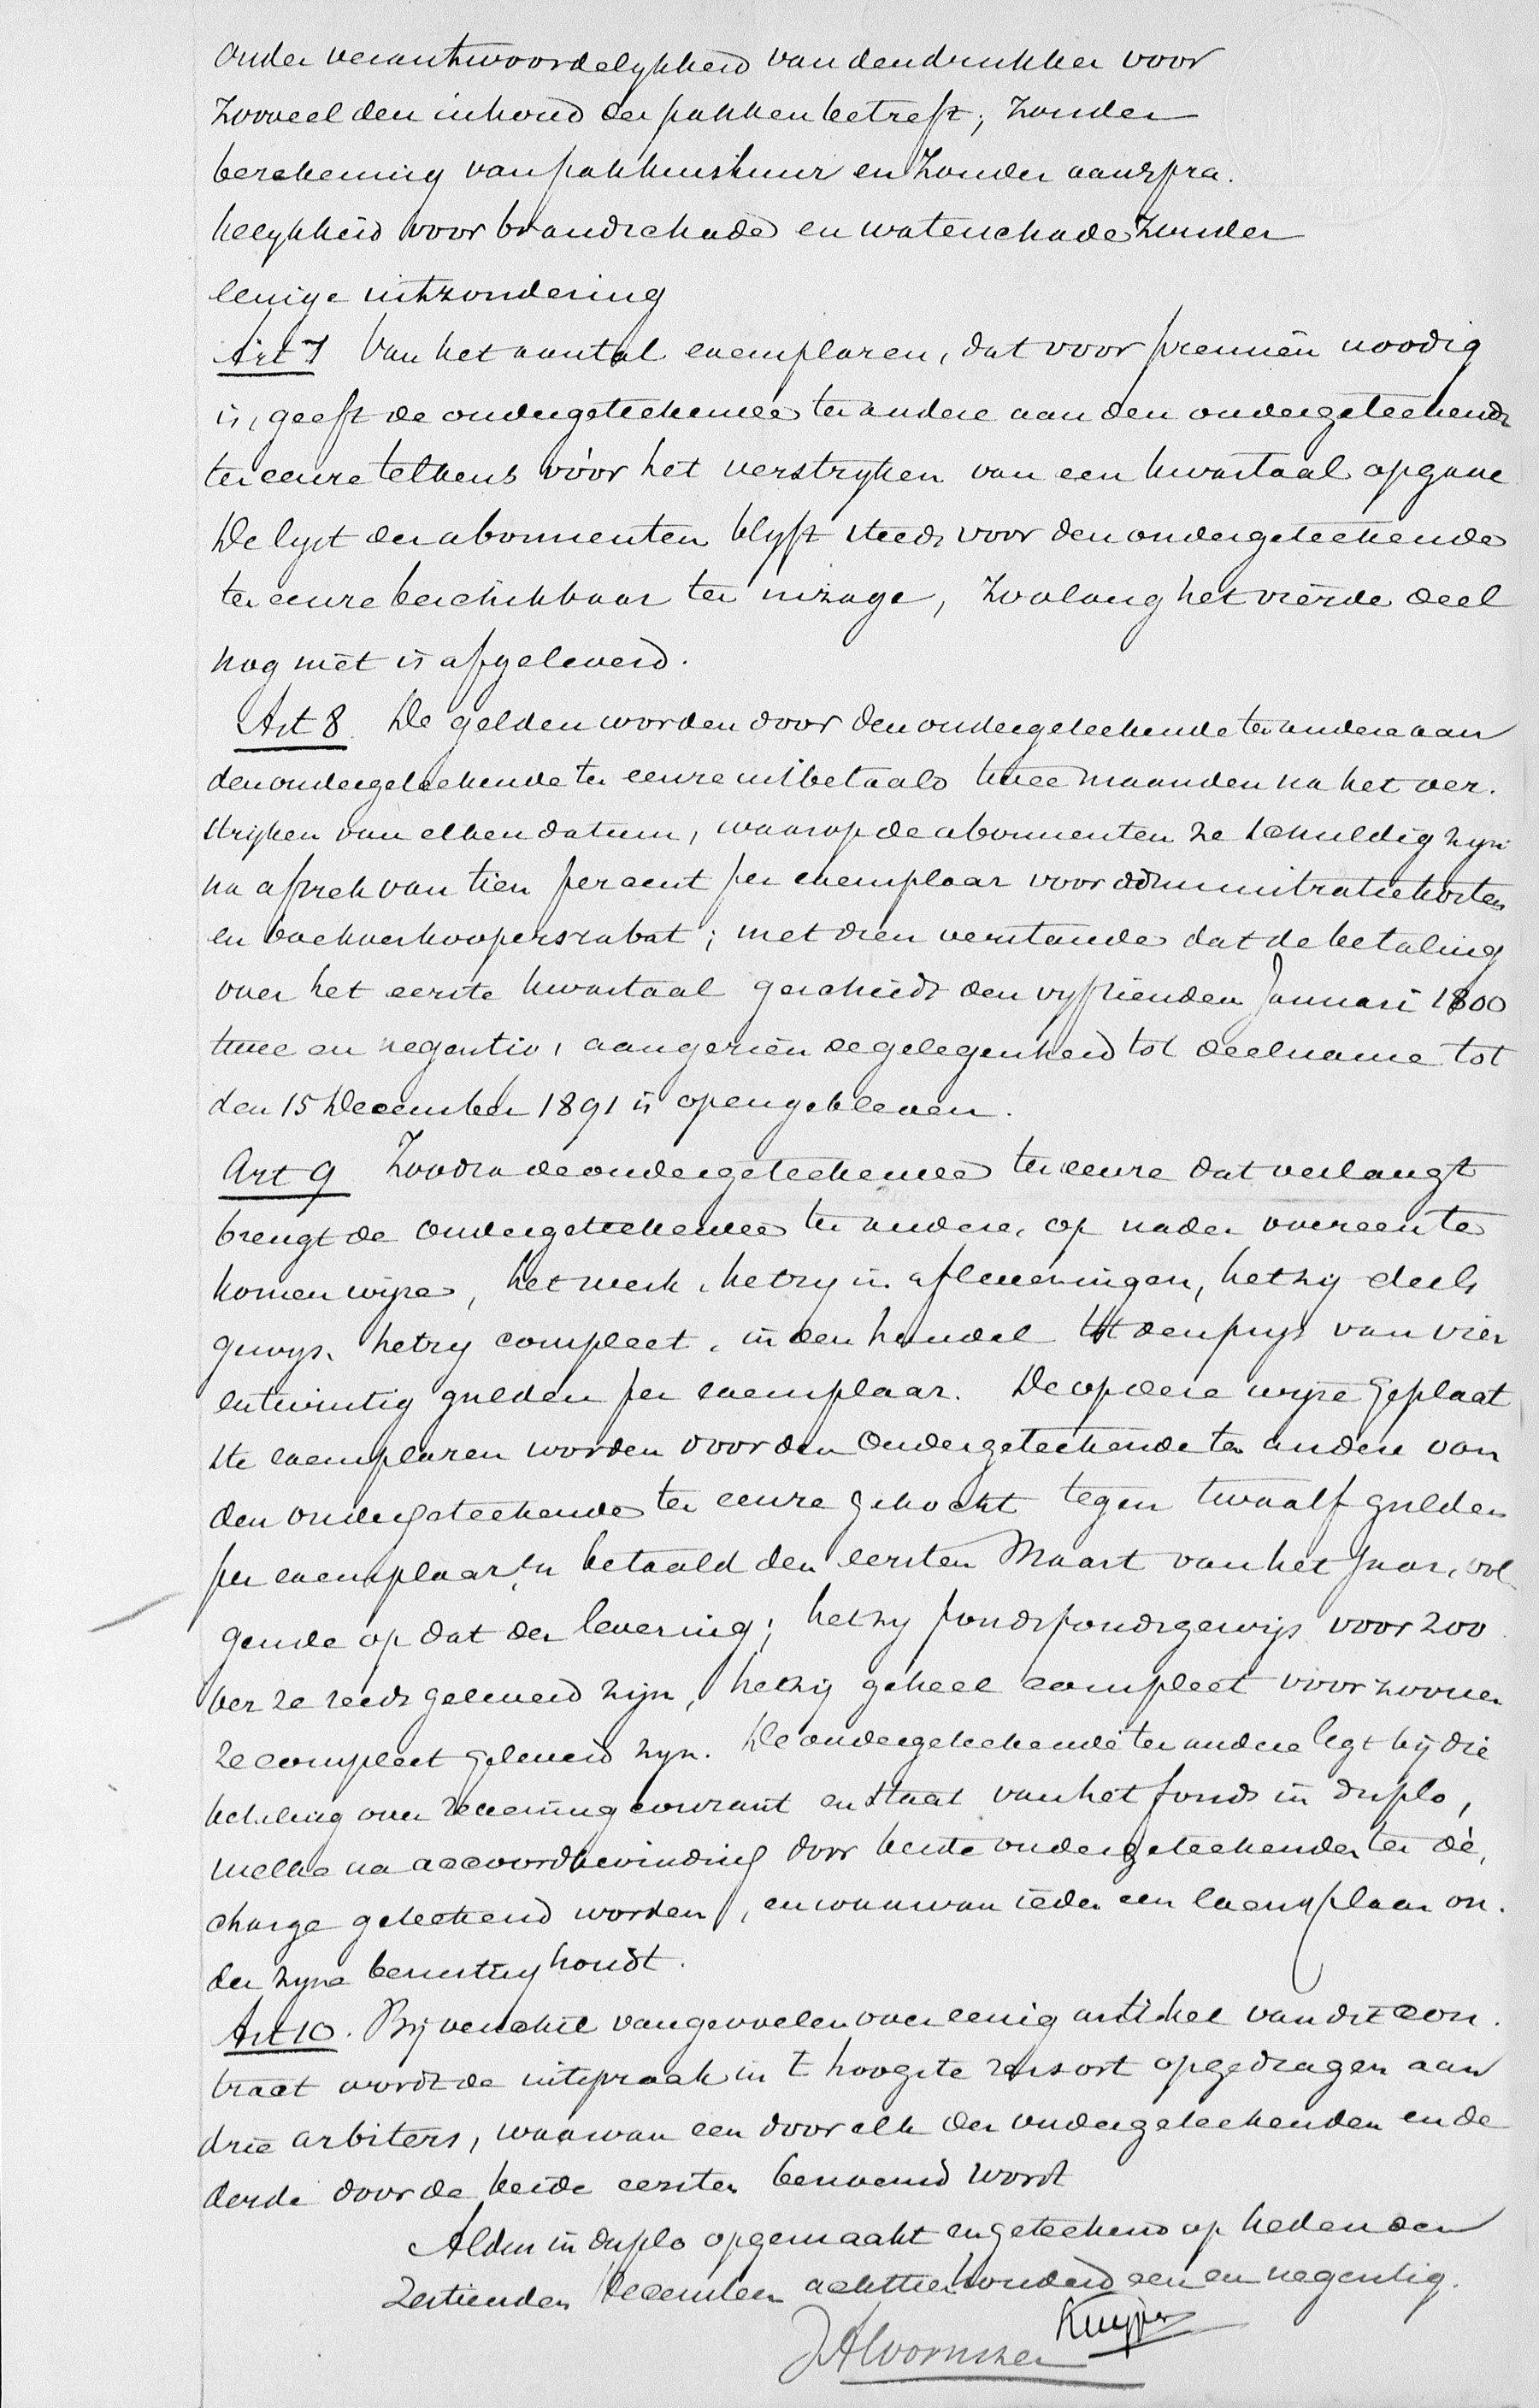 onder verantwoordelykheid van den drukker voor
zooveel den inhoud der pakken betreft; zonder
berekening van pakhuishuur en zonder aanspra.
kelykheid voor brandschade en waterschade zonder
eenige uitzondering
Art 7 Van het aantal exemplaren, dat voor premiën noodig
is, geeft de ondergeteekende ter andere aan den ondergeteekende
ter eenre telkens vóór het verstryken van een kwartaal opgave
De lyst der abonnenten blyft steeds voor den ondergeteekende
ter eenre beschikbaar ter inzage, zoolang het vierde deel
nog niet is afgeleverd.
Art 8. De gelden worden door den ondergeteekende ter andere aan
den ondergeteekende ter eenre uitbetaald twee maanden na het ver.
strijken van elken datum, waarop de abonnenten ze schuldig zyn
na aftrek van tien percent per exemplaar voor administratiekosten
en boekverkoopersrabat; met dien verstande dat de betaling
over het eerste kwartaal geschiedt den vyftienden Januari 1800
twee en negentig, aangezien de gelegenheid tot deelname tot
den 15 December 1891 is opengebleven.
Art 9 Zoodra de ondergeteekende ter eenre dat verlangt
brengt de ondergeteekende ter andere, op nader overeen te
komen wijze, het werk, hetzy in afleveringen, hetzy deels
gewys, hetzy compleet, in den handel tot den prys van vier
entwintig gulden per exemplaar. De op deze wijze geplaat
ste exemplaren worden door den Ondergeteekende ter andere van
den ondergeteekende ter eenre gekocht tegen twaalf gulden
per exemplaar, en betaald den eersten Maart van het jaar, vol
gende op dat der levering; hetzy fondsgewijs voor 200
ver ze reeds geleverd zijn, hetzij geheel compleet voor zoover
ze compleet geleverd zyn. De ondergeteekende ter andere legt bij die
betaling over rekening courant en staat van het fonds in duplo,
welke na accoordbevinding door beide ondergeteekenden ter dé,
charge geteekend worden, en waarvan ieder een exemplaar on.
der zyne berusting houdt.
Art 10. Bij verschil van gevoelen over eenig artikel van dit con.
tract wordt de uitspraak in 't hoogste ressort opgedragen aan
drie arbiters, waarvan een door elk der ondergeteekenden en de
derde door de beide eersten benoemd wordt
Aldus in duplo opgemaakt en geteekend op heden den
zestienden December achttienhonderd een en negentig.
Kuyper
JAWormser